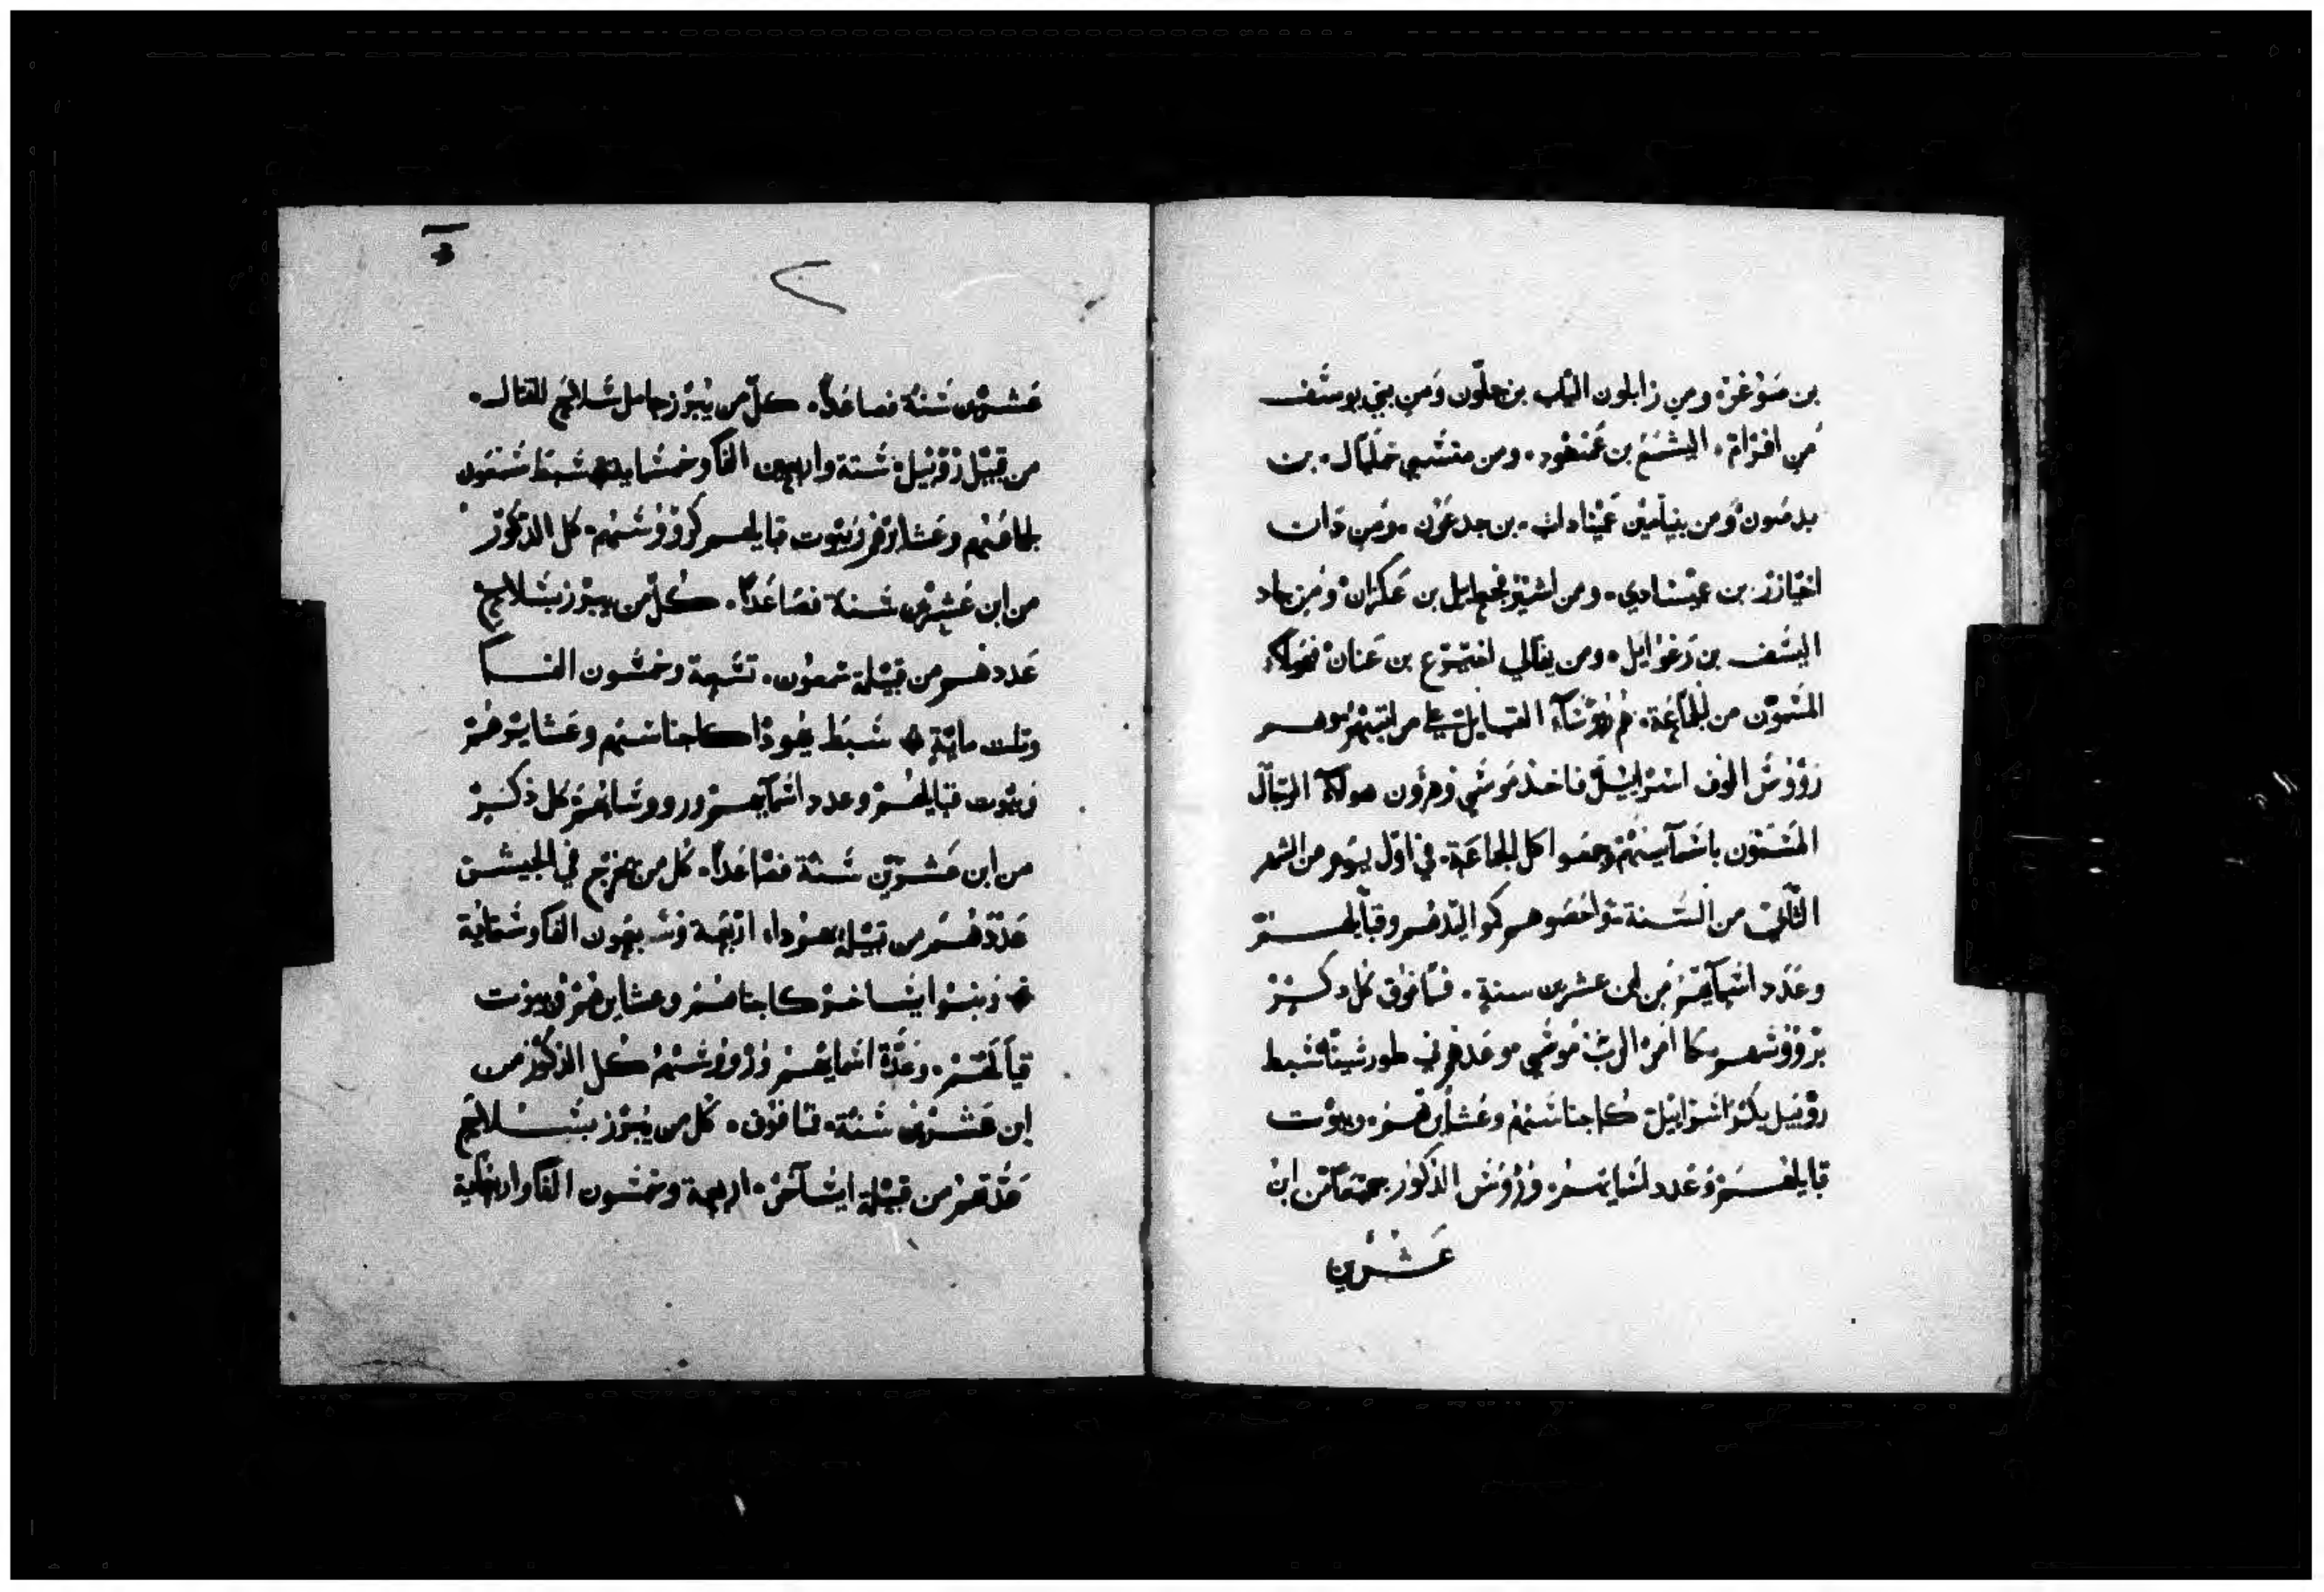 بن صوغره ومن زابلون الياب بن حلون ومن بني يوسف
من افرام اليشمع بن عميهود ومن منسي جمليال بن
بن جدعون ومن دان
اخيازر بن عميشادي ومن اشير بن عكران ومن جاد
اليسف بن رعوايل ومن نفتالي بن عنان فهولاء
المسمون من الجماعة هم روساء القبايل على مراتبهم وهم
رووس الوف اسراييل فاخذ موسي وهرون هولاء الرجال
المسمون باسمايهم وجمعوا كل الجماعة في اول يوم من الشهر
الثاني من السنة وقبايلهم
وعدد اسمايهم من ابن عشرين سنة فما فوق كل ذكر
برووسهم كما امر الرب موسي وعدهم في طور سينا سبط
روبيل بكر اسراييل كاجناسهم وعشايرهم وبيوت
قبايلهم وعدد اسمايهم ورووس الذكور من ابن
عشرين
عشرين سنة فصاعدا كل من يبرز حامل سلاح للقتال
من قبيل روبيل ستة واربعين الفا وخمسماية سبط شمعون
وعشايرهم وبيوت قبايلهم كرووسهم كل الذكور
من ابن عشرين سنة فصاعدا كل من يبرز بسلاح
عددهم من قبيلة شمعون تسعة وخمسون الفا
وتلت ماية سبط يهوذا كاجناسهم وعشايرهم
وبيوت قبايلهم وعدد اسمايهم ورووسهم كل ذكر
من ابن عشرين سنة فصاعدا كل من يخرج في الجيش
عددهم من قبيلة يهودا اربعة وسبعون الفا وستماية
وبنوا ايساخر كاجناسهم وعشايرهم وبيوت
قبايلهم وعدة اسمايهم ورووسهم كل الذكور من
ابن عشرين سنة فما فوق كل من يبرز بسلاح
عدتهم من قبيلة ايساخر اربعة وخمسون الفا واربعماية